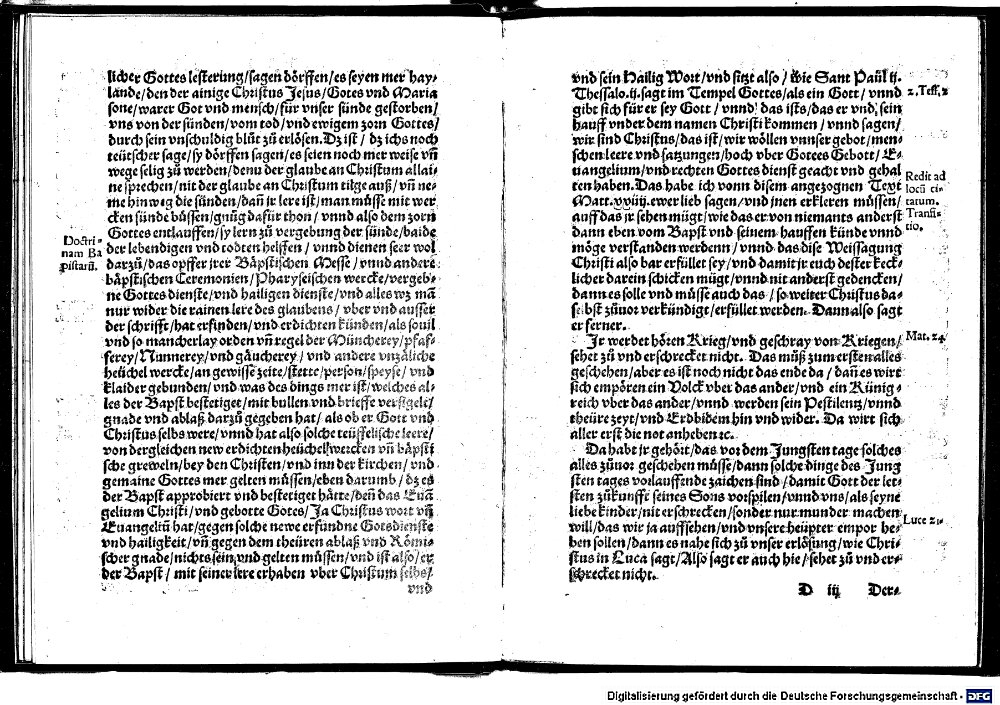 licher Gottes lesterung/sagen dörffen/es seyen mer hay-
lande/den der ainige Christus Jesus/Gotes vnd Maria
sone/warer Got vnd mensch/für vnser sünde gestorben/
vns von der sünden/vom tod/vnd ewigem zorn Gottes/
durch sein vnschuldig blůt zů erlösen. Dz ist / dz ichs noch
teütscher sage/sy dörffen sagen/es seien noch mer weise vñ
wege selig zů werden/denn der glaube an Christum allai-
ne sprechen/nit der glaube an Christum tilge auß/vñ ne-
me hinweg die sünden/dañ jr lere ist/man müsse mit wer
cken sünde büssen/gnůg dafür thon / vnnd also dem zorn
Gottes entlauffen/sy lern zů vergebung der sünde/baide
Doctri-
nam Ba
pistarũ.
der lebendigen vnd todten helffen / vnnd dienen seer wol
darzů/das opffer jrer Bäpstischen Messe /vnnd andere
bäpstischen Ceremonien/Pharyseischen wercke/vergeb-
ne Gottes dienste/vnd hailigen dienste/vnd alles wz mã
nur wider die rainen lere des glaubens / vber vnd ausser
der schrifft/hat erfinden/vnd erdichten künden/als souil
vnd so mancherlay orden vñ regel der Müncherey/pfaf-
ferey/Nunnerey/vnd gäucherey / vnd andere vnzäliche
heüchel wercke/an gewisse zeite/stette/person/speyse/ vnd
klaider gebunden/vnd was des dings mer ist/welches al-
les der Bapst bestetiget/mit bullen vnd brieffe versigelt/
gnade vnd ablaß darzů gegeben hat/als ob er Gott vnd
Christus selbs were/vnnd hat also solche teüffelische leere/
von dergleichen new erdichten heüchelwercken vñ bäpsti
sche greweln/bey den Christen/vnd inn der kirchen/vnd
gemaine Gottes mer gelten müssen/eben darumb/dz es
der Bapst approbiert vnd bestetiget hätte/deñ das Euã
gelium Christi/vnd gebotte Gottes/Ja Christus wort vñ
Euangeliũ hat/gegen solche newe erfundne Gotsdienste
vnd hailigkeit/vñ gegen dem theüren ablaß vnd Römi-
scher gnade/nichts sein vnd gelten müssen/vnd ist also/er
der Bapst / mit seiner lere erhaben vber Christum selbs/
vnd
vnd sein Hailig Wort/vnd sitzt also / wie Sant Paůl ij.
Thessalo.ij.sagt im Tempel Gottes/als ein Gott / vnnd
2.Tess.2
gibt sich für er sey Gott / vnnd das ists/das er vnd sein
hauff vnder dem namen Christi kommen / vnnd sagen/
wir sind Christus/das ist/wir wöllen vnnser gebot/men-
schen leere vnd satzungen/hoch vber Gottes Gebott/ E-
uangelium/vnd rechten Gottes dienst geacht vnd gehal
ten haben. Das habe ich vonn disem angezognen Text
Redit ad
locũ ci-
tatum.
Transi-
tio.
Matt.xxiiij.ewer lieb sagen/vnd jnen erkleren müssen/
auff das jr sehen mügt/wie das er von niemants anderst
dann eben vom Bapst vnd seinem hauffen künde vnnd
möge verstanden werdenn / vnnd das dise Weissagung
Christi also bar erfüllet sey/vnd damit jr euch dester keck-
licher darein schicken mügt/vnnd nit anderst gedencken/
dann es solle vnd müsse auch das / so weiter Christus da-
selbst zůuor verkündigt/erfüllet werden. Dann also sagt
er ferner.
Jr werdet hören Krieg/vnd geschray von Kriegen/
Mat. 24.
sehet zů vnd erschrecket nicht. Das můß zum ersten alles
geschehen/aber es ist noch nicht das ende da / dañ es wirt
sich empören ein Volck vber das ander/vnd ein Künig-
reich vber das ander/vnnd werden sein Pestilentz/vnnd
theüre zeyt/vnd Erdbidem hin vnd wider. Da wirt sich
aller erst die not anheben ꝛc.
Da habt jr gehört/das vor dem Jungsten tage solches
alles zůuor geschehen müsse/dann solche dinge des Jung
sten tages vorlauffende zaichen sind / damit Gott der let-
sten zůkunfft seines Sons vorspilen/vnnd vns/als seyne
liebe kinder/nit erschrecken/sonder nur munder machen
Luce 21.
will/das wir ja auffsehen/vnd vnsere heüpter empor he-
ben sollen/dann es nahe sich zů vnser erlösung/wie Chri-
stus in Luca sagt/Also sagt er auch hie/sehet zů vnd er-
schrecket nicht.
D iij Der-
Digitalisierung gefördert durch die Deutsche Forschungsgemeinschaft - DFG